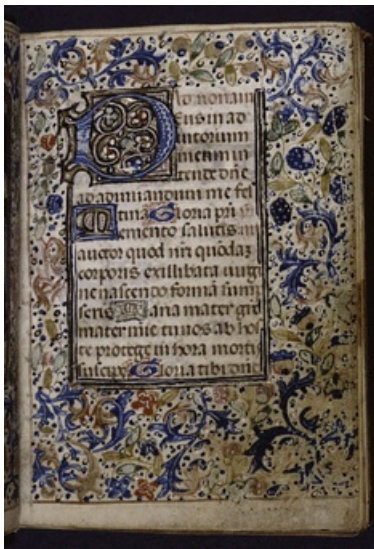 Ad nonam
Deus in ad
iutorium
meum in
tende dñe
ad adiuuandum me fes
tina Gloria pri
Memento salutis
auctor quod nri quõdaz
corporis ex illibata uirgi
ne nascendo formã sum
seris Maria mater grê
mater mie tu nos ab hos
te protege in hora morti
suscipe Gloria tibi dñe